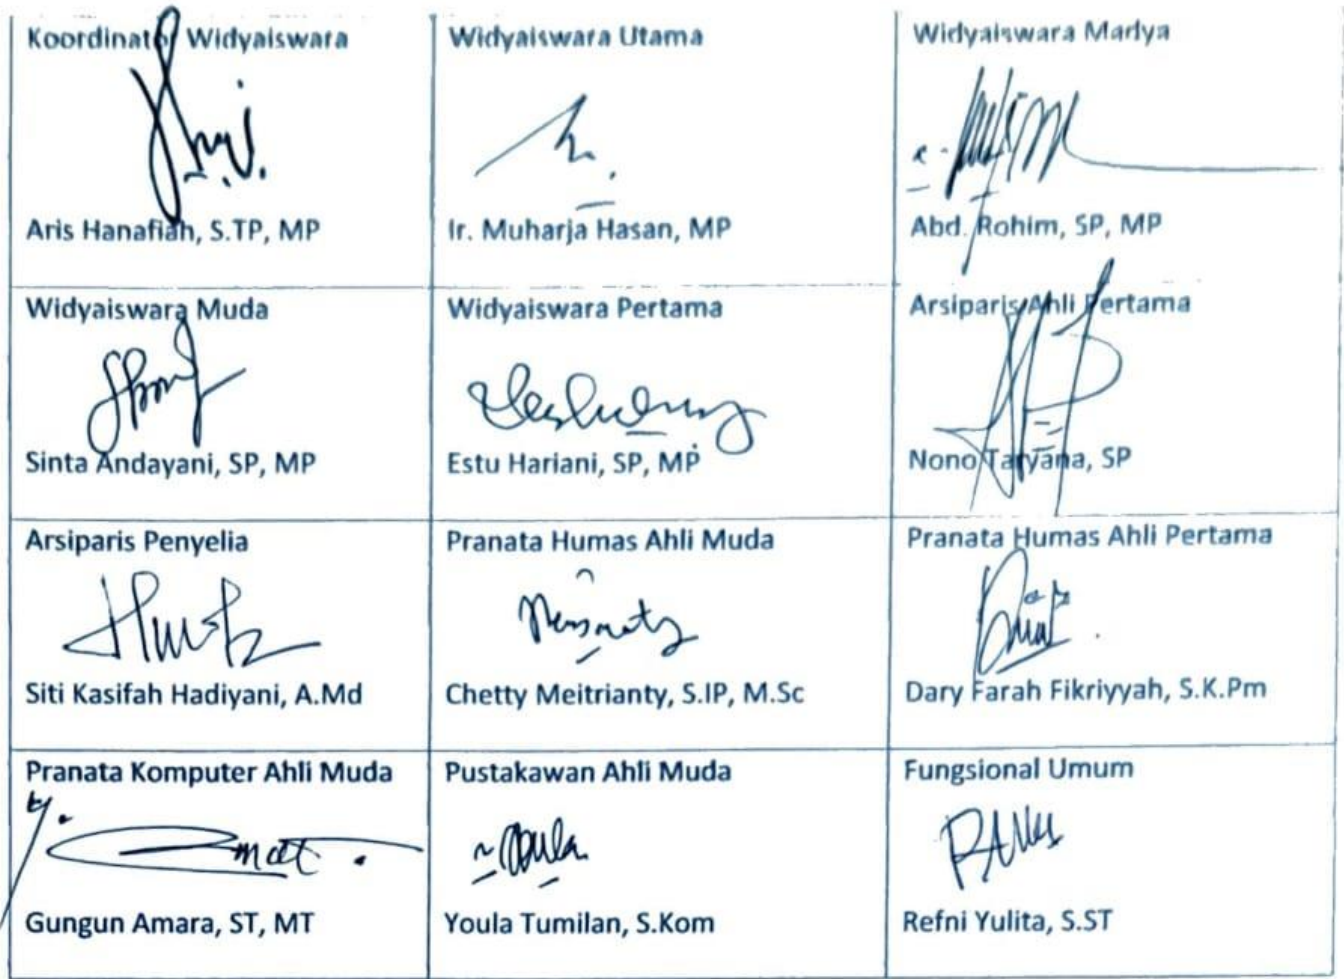 Koordinator Widyaiswara
Aris Hanafiah, S.TP, MP
Widyaiswara Utama
Ir. Muharja Hasan, MP
Widyaiswara Madya
Abd. Rohim, SP, MP
Widyaiswara Muda
Sinta Andayani, SP, MP
Widyaiswara Pertama
Estu Hariani, SP, MP
Arsiparis Ahli Pertama
Nono Taryana, SP
Arsiparis Penyelia
Siti Kasifah Hadiyani, A.Md
Pranata Humas Ahli Muda
Chetty Meitrianty, S.IP, M.Sc
Pranata Humas Ahli Pertama
Dary Farah Fikriyyah, S.K.Pm
Pranata Komputer Ahli Muda
Gungun Amara, ST, MT
Pustakawan Ahli Muda
Youla Tumilan, S.Kom
Fungsional Umum
Refni Yulita, S.ST